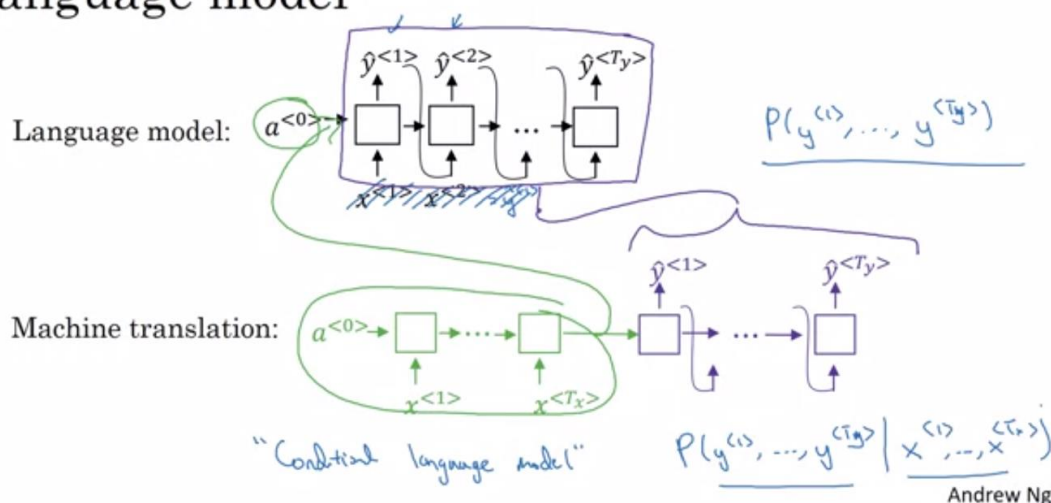 anguage model
Language model: a<0> ŷ<1> ŷ<2> ... ŷ<Ty>
x<1> x<2>
P(y<1>, ..., y<Ty>)
Machine translation: a<0> ... ŷ<1> ... ŷ<Ty>
x<1> x<Tx>
"Conditional language model"
P(y<1>, ..., y<Ty> | x<1>, ..., x<Tx>)
Andrew Ng